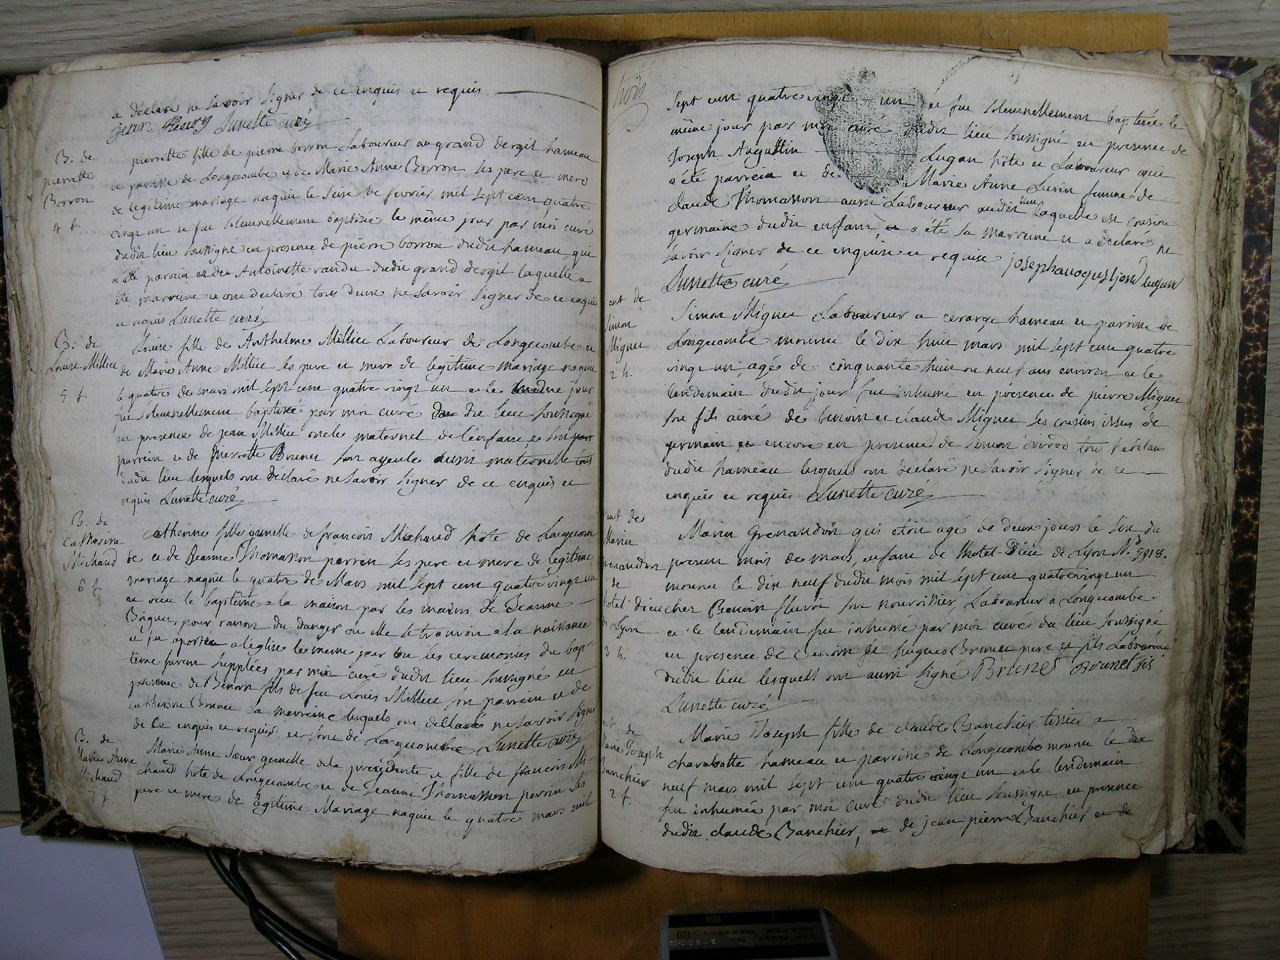 a déclaré ne savoir signer de ce enquis et requis
jean fleury Lunette curé
B. de
pierrette
Borron
4 f.
pierrette fille de pierre borron Laboureur au grand dergit hameau
et paroisse de Longecombe et de Marie Anne Borron ses pere et mere
de legitime mariage naquit le seize de fevrier mil sept cent quatre
vingt un et fut solennellement baptisée le même jour par moi curé
dudit lieu soussigné en presence de pierre borron dudit hameau qui
a été parrain et de Antoinette randu dudit grand dergit laquelle a
été marraine et ont declaré tous deux ne savoir signer de ce enquis
et requis Lunette curé
B. de
Louise Millieu
5 f.
Louise fille de Anthelme Millieu Laboureur de Longecombe et
de Marie Anne Millieu ses pere et mere de legitime mariage naquit
le quatre de mars mil sept cent quatre vingt un et le même jour
fut solennellement baptisée par moi curé du dit lieu soussigné
en presence de jean Millieu oncle maternel de l'enfant et son
parrain et de pierrette Brunet son ayeule aussi maternelle tous
dudit lieu lesquels ont déclaré ne savoir signer de ce enquis et
requis Lunette curé
B. de
Catherine
Michaud
6 f.
Catherine fille jumelle de francois Michaud hote de Longecom
be et de Jeanne Thomasson perrin ses pere et mere de legitime
mariage naquit le quatre de Mars mil sept cent quatre vingt un
et recu le bapteme a la maison par les mains de Jeanne
Briguet pour raison du danger ou elle se trouvoit a la naissance
et fut aportée a léglise le meme jour ou les ceremonies du bap-
teme furent supplées par moi curé dudit lieu soussigné en
presence de Benoit fils de feu Louis Millieu son parrain et de
catherine Brunet sa marraine lesquels ont declaré ne savoir signer
de ce enquis et requis et sont de Longecombe Lunette curé
B. de
Marie Anne
Michaud
7 f.
Marie Anne soeur jumelle de la precedente et fille de francois Mi-
chaud hote de Longecombe et de Jeanne Thomasson perrin ses
pere et mere de legitime Mariage naquit le quatre mars mil
trois
sept cent quatre vingt un et fut solennellement baptisée le
même jour par moi curé dudit lieu soussigné en presence de
Joseph Augustin Lugan hote et Laboureur qui
a été parrain et de Marie Anne Lurin femme de
claude Thomasson aussi Laboureur audit lieu laquelle est cousine
germaine dudit enfant, et a été sa marraine et a déclaré ne
savoir signer de ce enquise et requise josephaugustin Lugan
Lunette curé
ent de
Simon
Miguet
2 h.
Simon Miguet Laboureur a cerarge hameau et paroisse de
Longecombe mourut le dix huit mars mil sept cent quatre
vingt un agé de cinquante huit ou neuf ans environ et le
lendemain dudit jour fut inhumé en presence de pierre Miguet
son fils ainé de benoit et claude Miguet ses cousins issus de
germain et encore en presence de simon tous habitans
dudit hameau lesquels ont déclaré ne savoir signer de ce
enquis et requis Lunette curé
ent de
Marin
grenaudon
de
hotel dieu
Lyon
3 h.
Marin Grenaudon qui étoit agé de deux jours le six du
present mois de mars, enfant de l'hotel Dieu de Lyon N.° 5918.
mourut le dix neuf dudit mois mil sept cent quatre vingt un
chez Benoit fleurie son nourissier Laboureur a Longecombe
et le lendemain fut inhumé par moi curé du lieu soussigné
en presence de Benoit et hugues Brunet pere et fils Laboureurs
dudit lieu lesquels ont aussi signé Brunet Brunet fis
Lunette curé
ent de
Marie Joseph
Banchier
2 f.
Marie Joseph fille de claude Banchier tissier a
charabotte hameau et paroisse de Longecombe mourut le dix
neuf mars mil sept cent quatre vingt un et le lendemain
fut inhumée par moi curé dudit lieu soussigné en presence
dudit claude Banchier, et de jean pierre Banchier et de